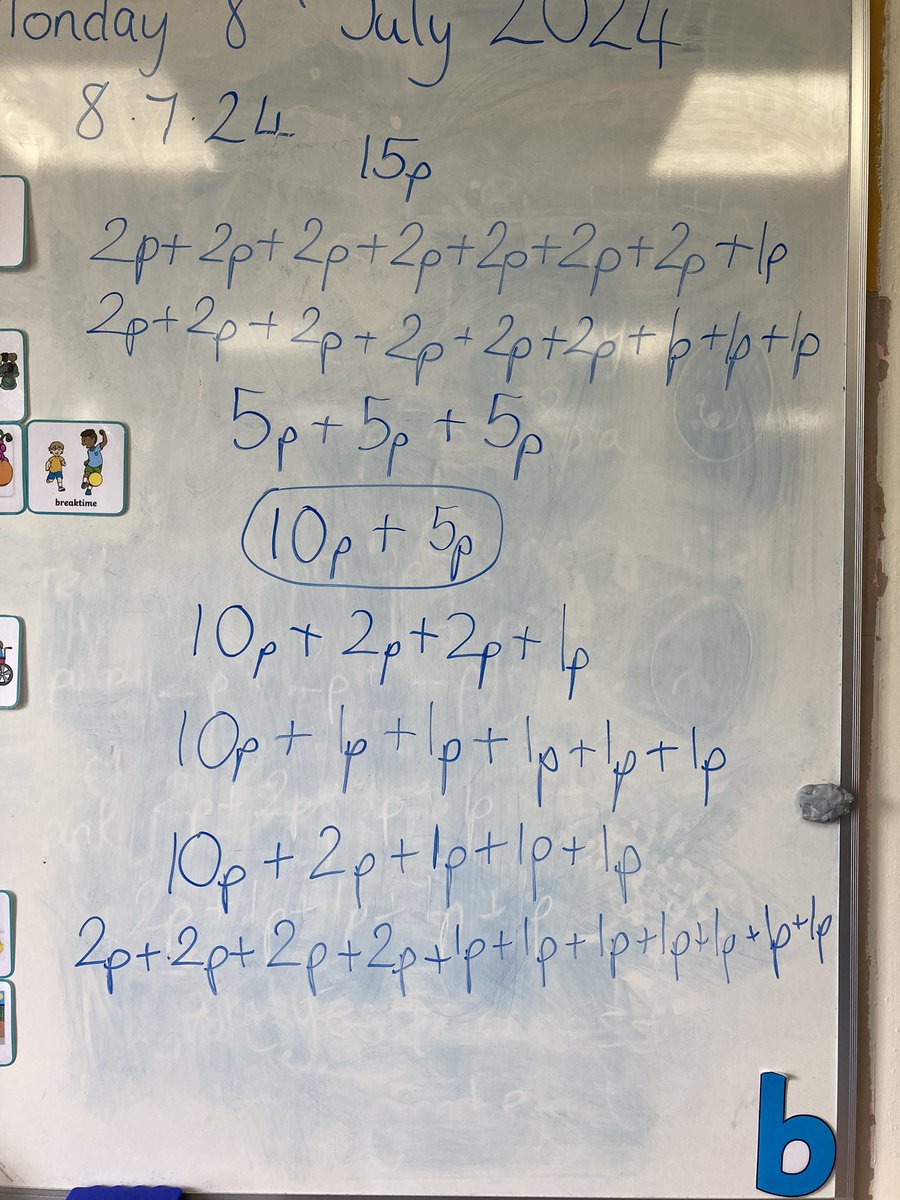 Monday 8 July 2024
8.7.24
15p
2p+2p+2p+2p+2p+2p+2p+1p
2p+2p+2p+2p+2p+2p+1p+1p+1p
5p+5p+5p
breaktime
10p+5p
10p+2p+2p+1p
10p+1p+1p+1p+1p+1p
10p+2p+1p+1p+1p
2p+2p+2p+2p+1p+1p+1p+1p+1p+1p+1p
b